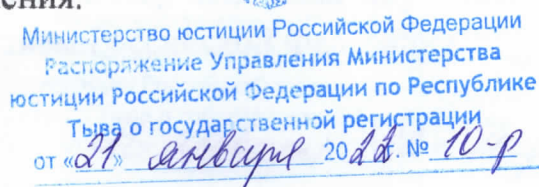 ения.
Министерство юстиции Российской Федерации
Распоряжение Управления Министерства
юстиции Российской Федерации по Республике
Тыва о государственной регистрации
от «21» января 2022г. № 10-р